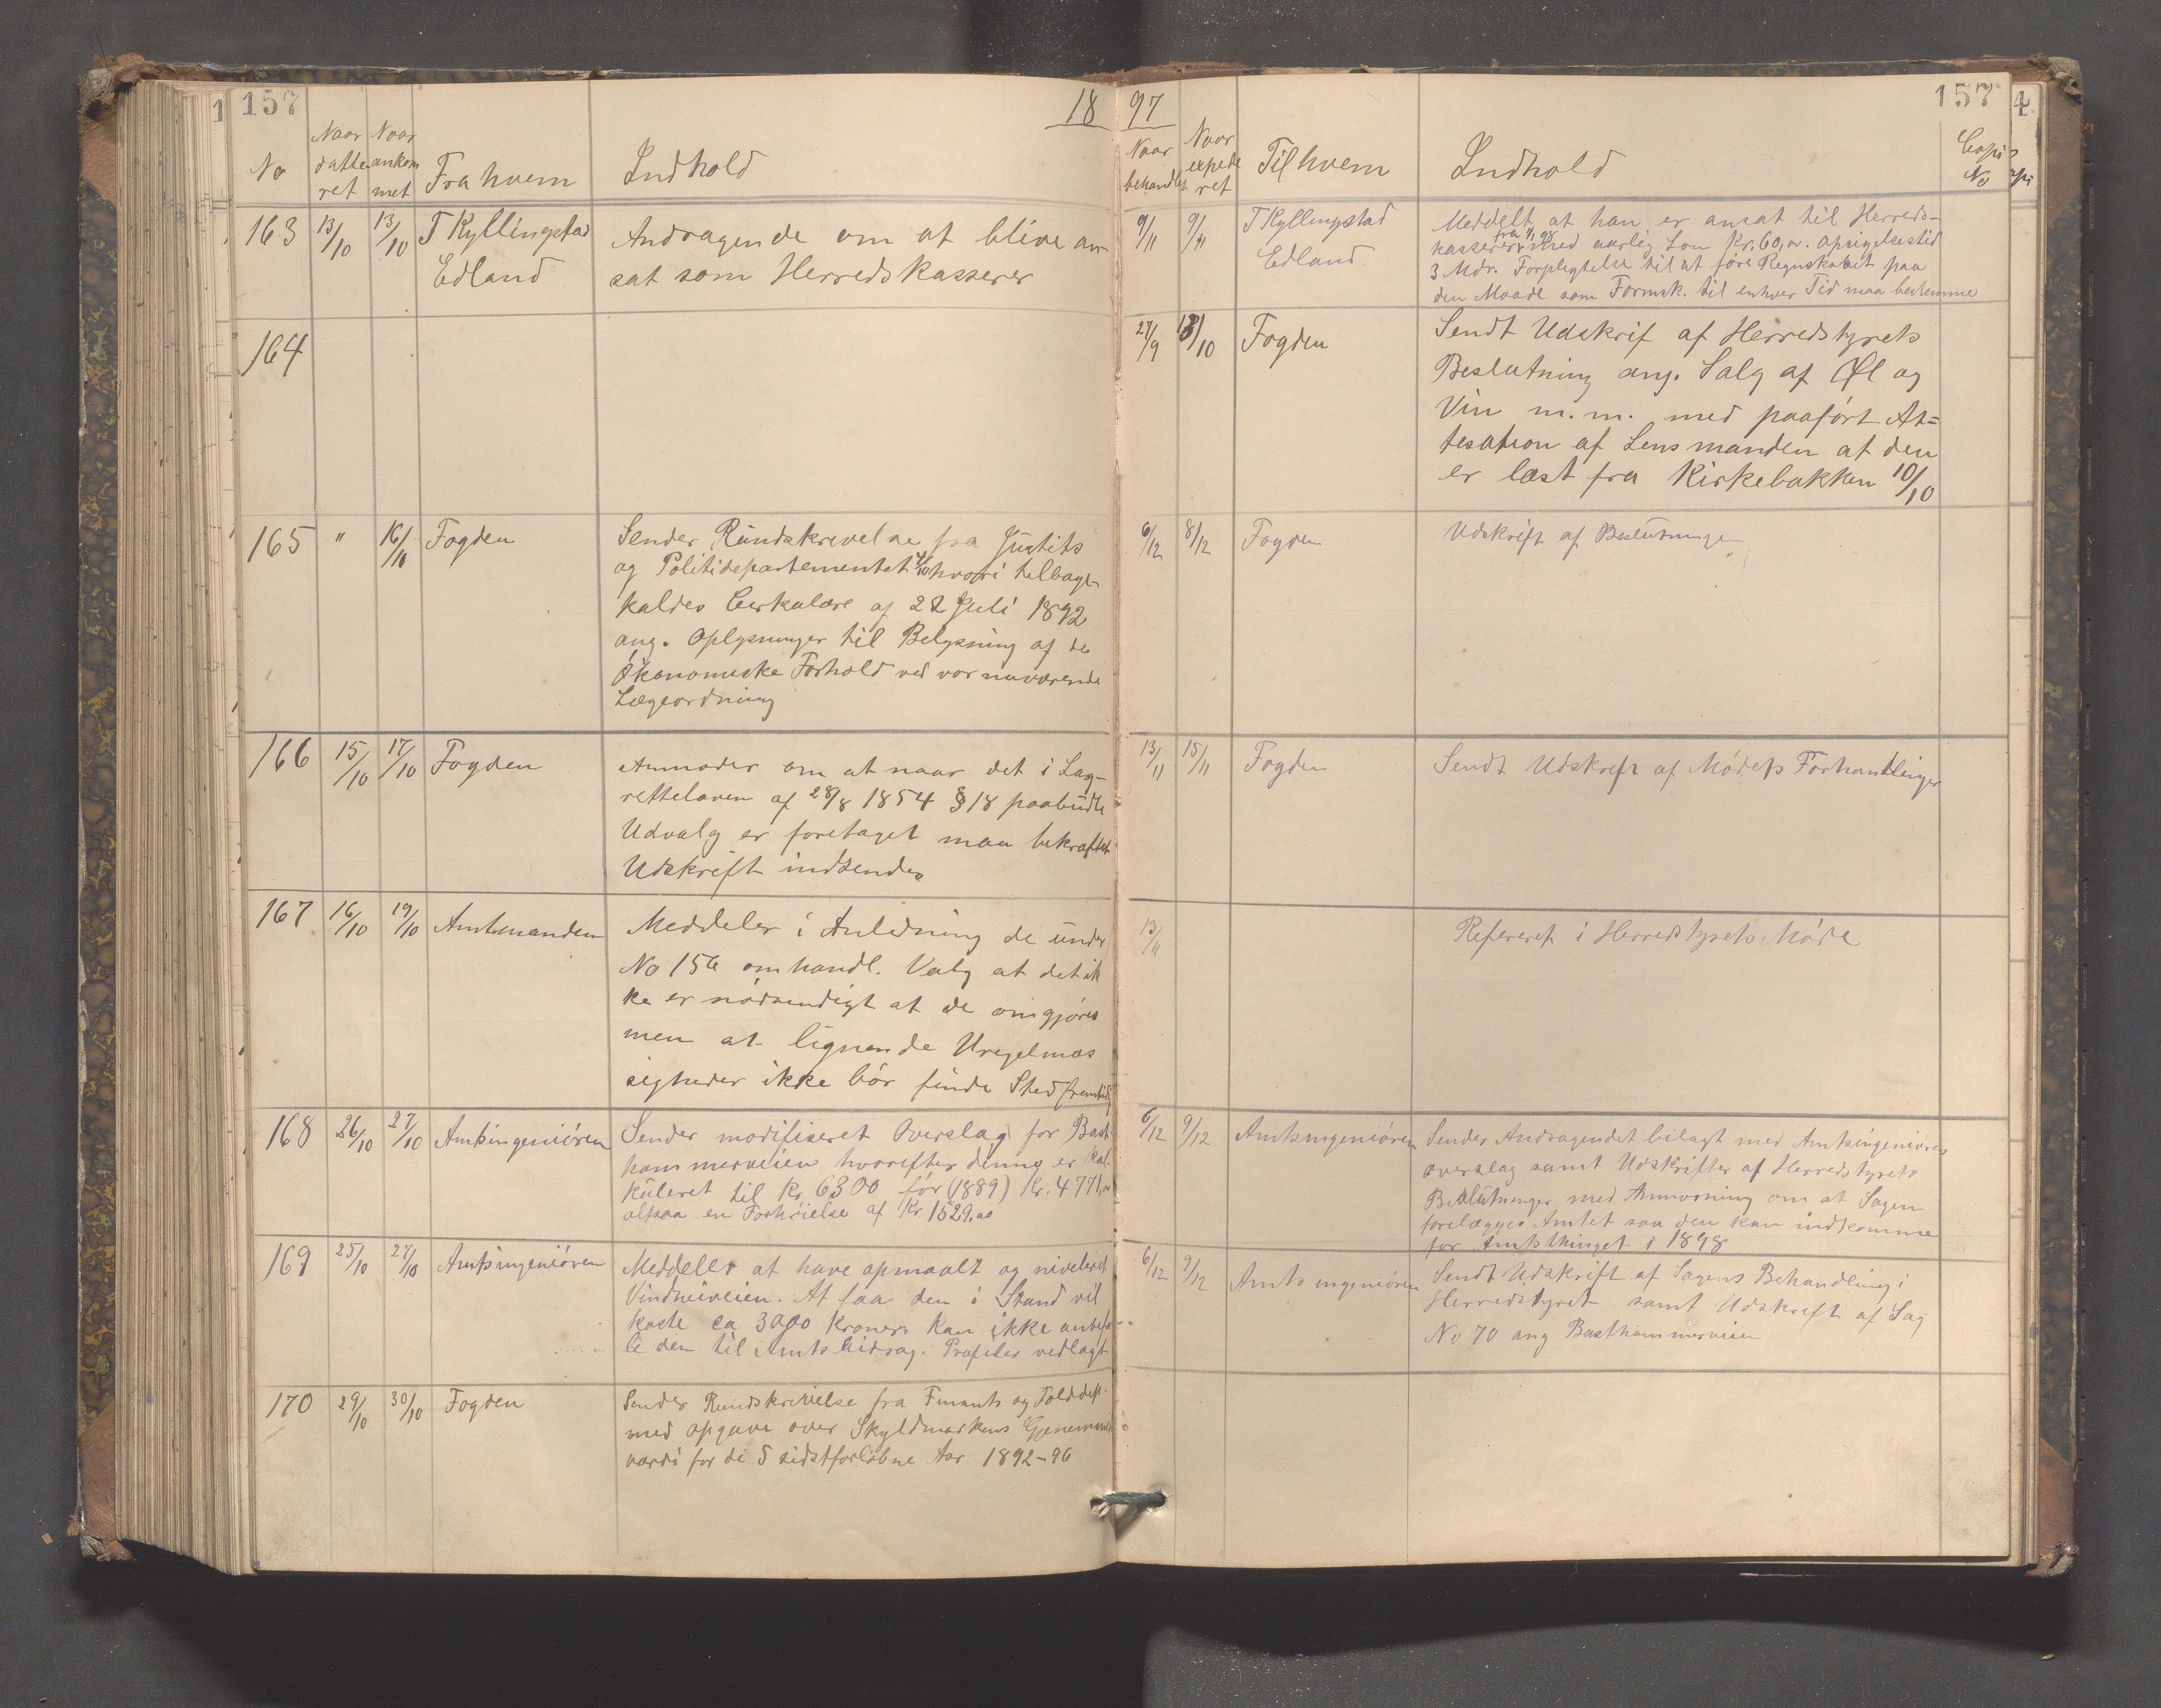 157
18
No
Naar datteret
Naar ankommet
Fra hvem
Indhold
163 13/10 13/10 T Kyllingstad Edland
Andragende om at blive an-
sat som Herredskasserer
164
165 " 16/10 Fogden
Sender Rundskrivelse fra Justits
og Politidepartementet 4/10 hvori tilbage-
kaldes Cirkulære af 22 Juli 1892
ang. Oplysninger til Belysning af de
Økonomiske Forhold ved vor nuværende
Lægeordning
166 15/10 17/10 Fogden
Anmoder om at naar det i Lag-
retteloven af 28/8 1854 § 18 paabudte
Udvalg er foretaget maa bekræftet
Udskrift indsendes
167 16/10 19/10 Amtmanden
Meddeler i Anledning de under
No 156 omhandl. Valg at det ik
ke er nødvendigt at de omgjøres
men at lignende Uregelmæs
sigheder ikke bør finde Sted fremtidig
168 26/10 27/10 Amtsingeniøren
Sender modifiseret Overslag for Bast-
hammerveien hvorefter denne er kal-
kuleret til Kr 6300 før (1889) Kr. 4771,00
altsaa en Forhøielse af Kr 1529,00
169 25/10 27/10 Amtsingeniøren
Meddeler at have opmaalt og niveleret
Vindsveiveien. At faa den i Stand vil
koste ca 3000 Kroner. Kan ikke anbefa-
le den til Amtsbidrag. Profiler vedlagt
170 29/10 30/10 Fogden
Sender Rundskrivelse fra Finants og Tolddept.
med opgave over Skyldmarkens Gjennemsnits
værdi for de 5 sidstforløbne Aar 1892-96
97
157
Naar behandlet
Naar expederet
Til hvem
Indhold
Copi No
9/11 9/11 T Kyllingstad Edland
Meddelt at han er ansat til Herreds-
kasserer fra 1/1 98 med aarlig Løn Kr. 60,00. Opsigelsestid
3 Mdr. Forpligtelse til at føre Regnskabet paa
den Maade som Formsk. til enhver Tid maa bestemme
27/9 13/10 Fogden
Sendt Udskrif af Herredstyrets
Beslutning ang. Salg af Øl og
Vin m.m. med paaført At=
testation af Lensmanden at den
er læst fra Kirkebakken 10/10
6/12 8/12 Fogden
Udskrift af Beslutningen
13/11 15/11 Fogden
Sendt Udskrift af Mødets Forhandlinger
13/11
Refereret i Herredstyrets Møde
6/12 9/12 Amtsingeniøren
Sender Andragendet bilagt med Amtsingeniørens
overslag samt Udskrifter af Herredstyrets
Beslutninger med Anmodning om at Sagen
forelægges Amtet saa den kan indkomme
for Amtsthinget i 1898
6/12 9/12 Amtsingeniøren
Sendt Udskrift af Sagens Behandling i
Herredstyret samt Udskrift af Sag
No 70 ang Basthammerveien